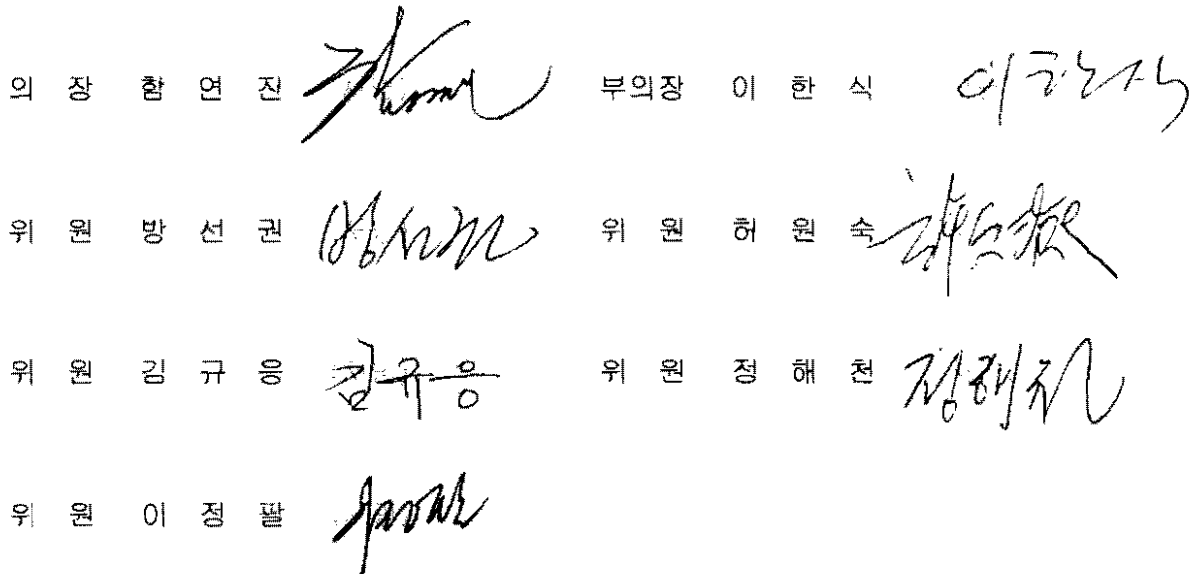 의 장 함 연 진 부의장 이 한 식 이한식
위 원 방 선 권 방선권 위 원 허 원 숙
위 원 김 규 응 김규응 위 원 정 해 천 정해천
위 원 이 정 팔